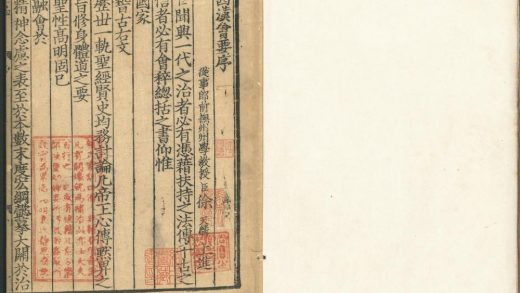 西漢會要序
從事郎前撫州州學教授臣徐天麟上進
聞興一代之治者必有憑藉扶持之法傳千古之
信者必有會稡總括之書仰惟
國家
稽古右文
歷世一軌聖經賢史均務討論凡帝王心傳默契之
旨修身體道之要
聖性高明固已
融會於
精神念慮之表至於本數末度宏綱懿摹大關於治